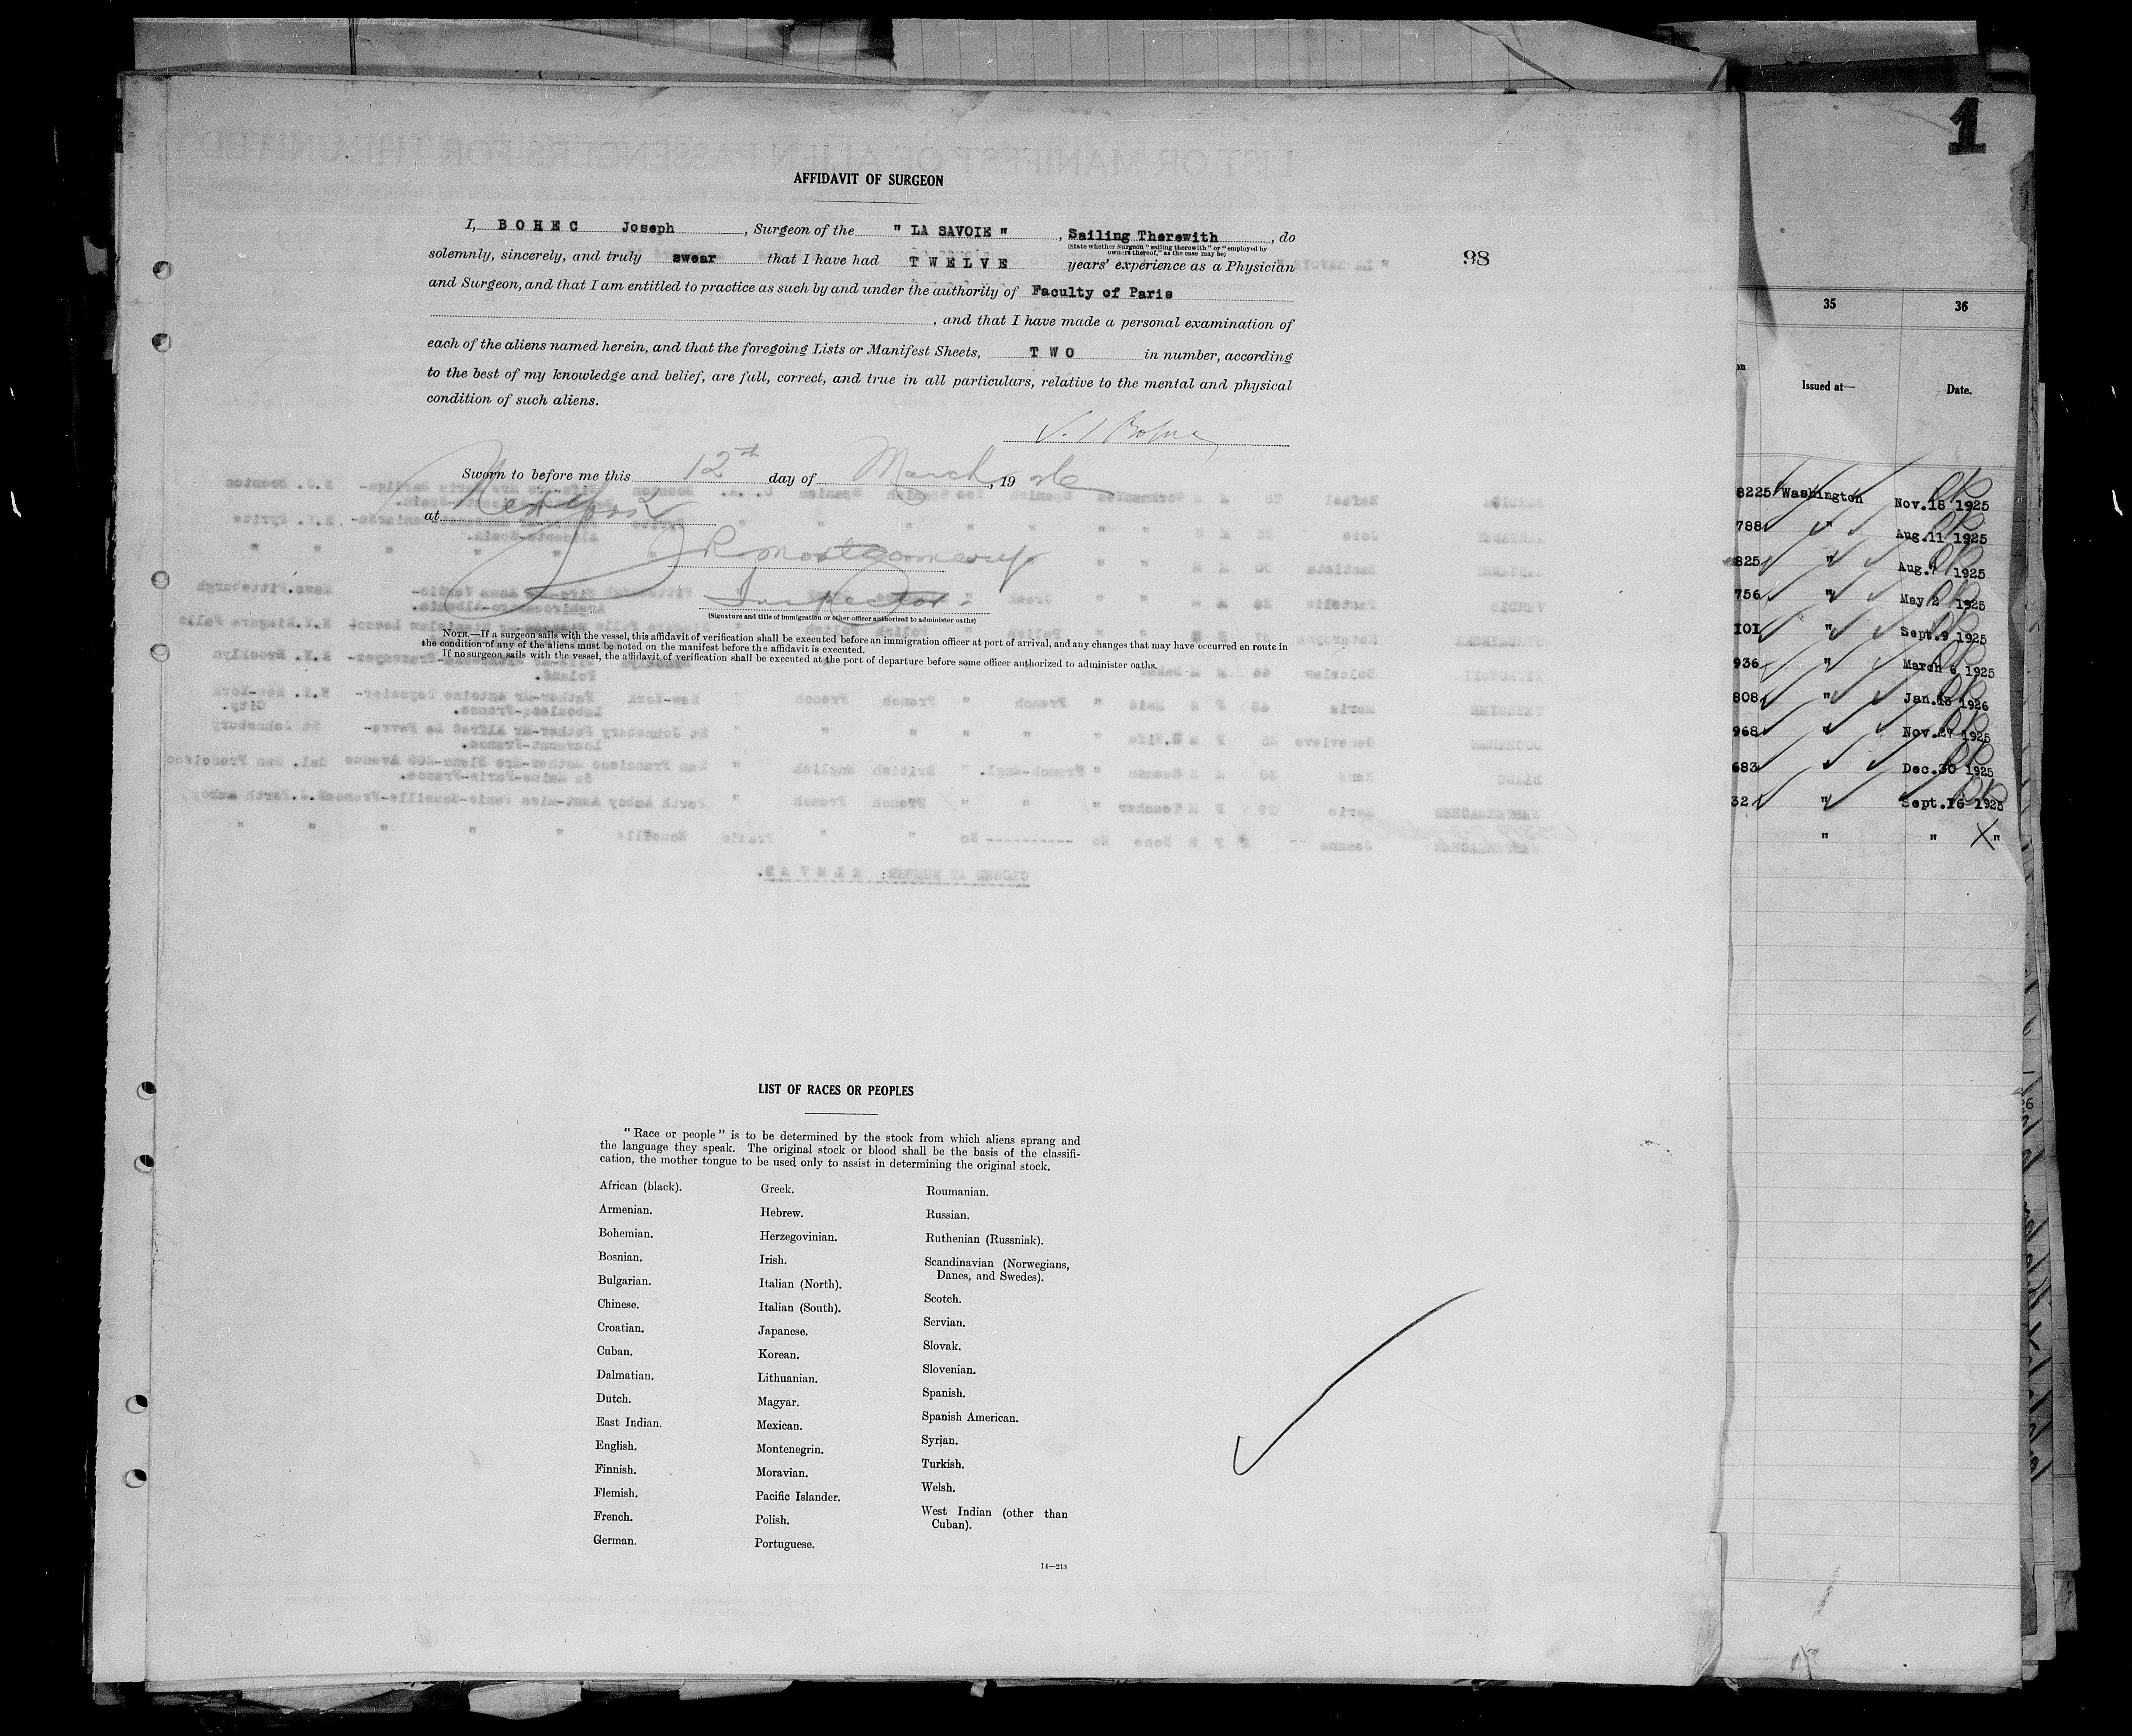 1
AFFIDAVIT OF SURGEON
I, BOHEC Joseph, Surgeon of the " LA SAVOIE ", Sailing Therewith, do
(State whether Surgeon "sailing therewith" or "employed by
owners thereof," as the case may be)
solemnly, sincerely, and truly swear that I have had TWELVE years' experience as a Physician
98
and Surgeon, and that I am entitled to practice as such by and under the authority of Faculty of Paris
, and that I have made a personal examination of
each of the aliens named herein, and that the foregoing Lists or Manifest Sheets, TWO in number, according
to the best of my knowledge and belief, are full, correct, and true in all particulars, relative to the mental and physical
condition of such aliens.
Sworn to before me this 12th day of March, 1926
at New York
J R Montgomery
Inspector.
(Signature and title of immigration or other officer authorized to administer oaths)
NOTE.—If a surgeon sails with the vessel, this affidavit of verification shall be executed before an immigration officer at port of arrival, and any changes that may have occurred en route in
the condition of any of the aliens must be noted on the manifest before the affidavit is executed.
If no surgeon sails with the vessel, the affidavit of verification shall be executed at the port of departure before some officer authorized to administer oaths.
LIST OF RACES OR PEOPLES
"Race or people" is to be determined by the stock from which aliens sprang and
the language they speak. The original stock or blood shall be the basis of the classifi-
cation, the mother tongue to be used only to assist in determining the original stock.
African (black).
Armenian.
Bohemian.
Bosnian.
Bulgarian.
Chinese.
Croatian.
Cuban.
Dalmatian.
Dutch.
East Indian.
English.
Finnish.
Flemish.
French.
German.
Greek.
Hebrew.
Herzegovinian.
Irish.
Italian (North).
Italian (South).
Japanese.
Korean.
Lithuanian.
Magyar.
Mexican.
Montenegrin.
Moravian.
Pacific Islander.
Polish.
Portuguese.
Roumanian.
Russian.
Ruthenian (Russniak).
Scandinavian (Norwegians,
Danes, and Swedes).
Scotch.
Servian.
Slovak.
Slovenian.
Spanish.
Spanish American.
Syrian.
Turkish.
Welsh.
West Indian (other than
Cuban).
14—213
35 36
on Issued at— Date.
8225 Washington Nov.18 1925 OK
788 " Aug.11 1925 OK
825 " Aug.7 1925 OK
756 " May 2 1925 OK
101 " Sept.9 1925 OK
936 " March 6 1925 OK
808 " Jan.18 1926 OK
968 " Nov.27 1925 OK
683 " Dec.30 1925 OK
32 " Sept.16 1925 OK
" " " X